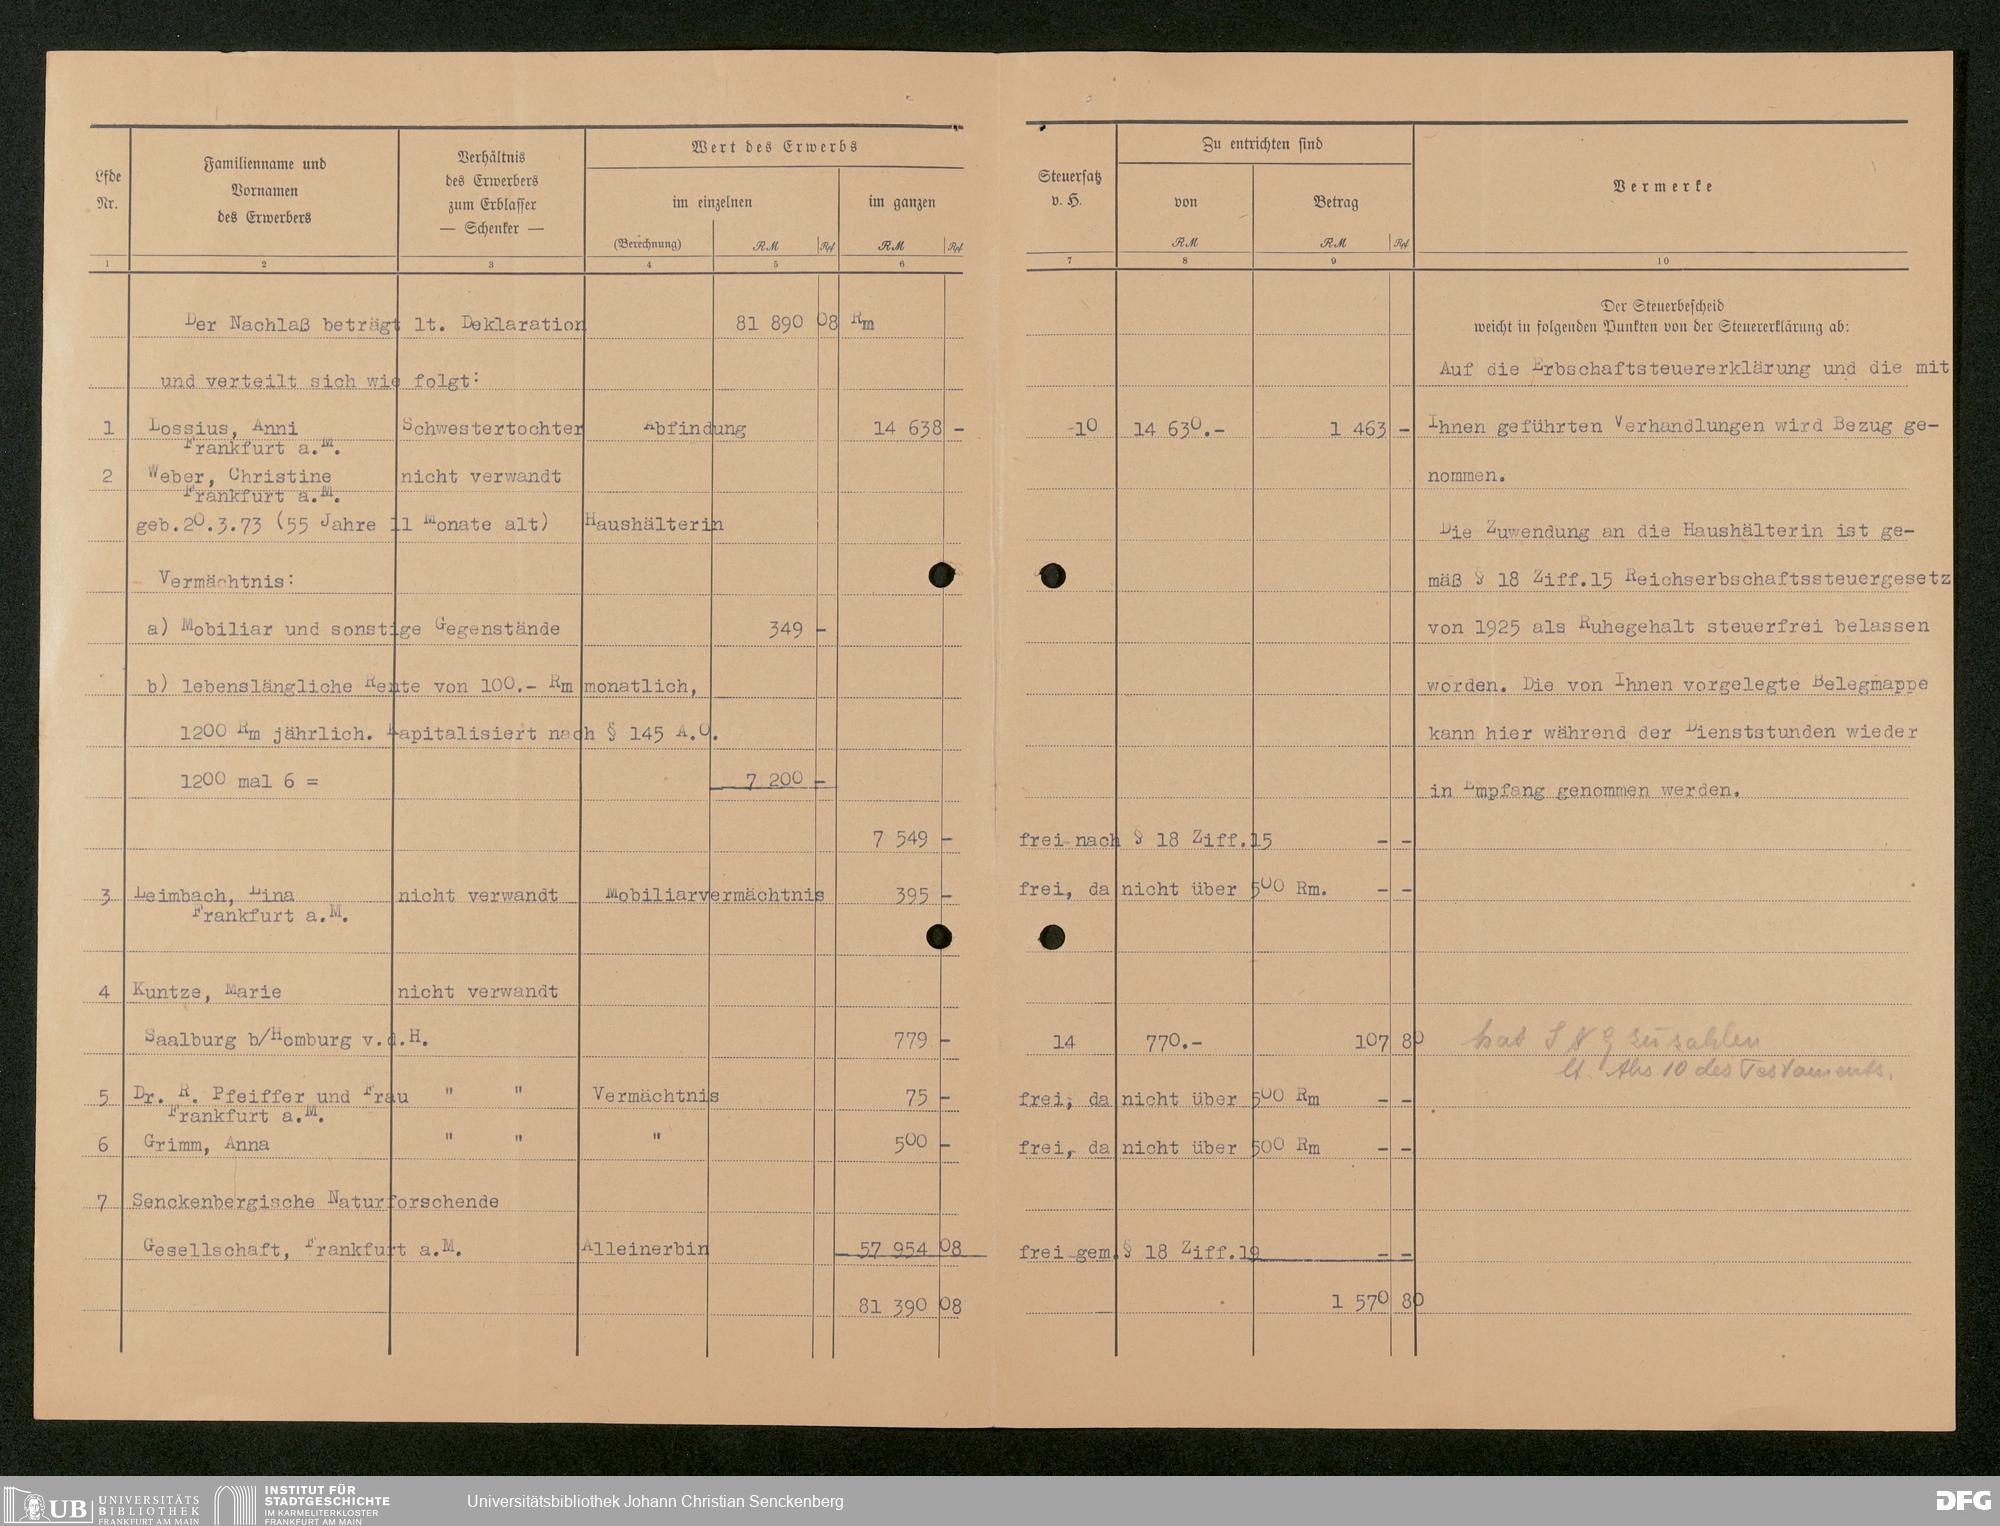 Lfde Nr.
Familienname und Vornamen des Erwerbers
Verhältnis des Erwerbers zum Erblasser — Schenker —
Wert des Erwerbs
im einzelnen
im ganzen
(Berechnung)
RM Rpf
RM Rpf
1 2 3 4 5 6
Der Nachlaß beträgt lt. Deklaration 81 890 08 Rm
und verteilt sich wie folgt:
1 Lossius, Anni Schwestertochter Abfindung 14 638 -
Frankfurt a.M.
2 Weber, Christine nicht verwandt
Frankfurt a.M.
geb.20.3.73 (55 Jahre 11 Monate alt) Haushälterin
Vermächtnis:
a) Mobiliar und sonstige Gegenstände 349 -
b) lebenslängliche Rente von 100.- Rm monatlich,
1200 Rm jährlich. Kapitalisiert nach § 145 A.O.
1200 mal 6 = 7 200 -
7 549 -
3 Leimbach, Lina nicht verwandt Mobiliarvermächtnis 395 -
Frankfurt a.M.
4 Kuntze, Marie nicht verwandt
Saalburg b/Homburg v.d.H. 779 -
5 Dr. R. Pfeiffer und Frau " " Vermächtnis 75 -
Frankfurt a.M.
6 Grimm, Anna " " " 500 -
7 Senckenbergische Naturforschende
Gesellschaft, Frankfurt a.M. Alleinerbin 57 954 08
81 390 08
Steuersatz v. H.
Zu entrichten sind
von
Betrag
RM
RM Rpf
Vermerke
7 8 9 10
Der Steuerbescheid
weicht in folgenden Punkten von der Steuererklärung ab:
Auf die Erbschaftsteuererklärung und die mit
10 14 630.- 1 463 - Ihnen geführten Verhandlungen wird Bezug ge-
nommen.
Die Zuwendung an die Haushälterin ist ge-
mäß § 18 Ziff.15 Reichserbschaftssteuergesetz
von 1925 als Ruhegehalt steuerfrei belassen
worden. Die von Ihnen vorgelegte Belegmappe
kann hier während der Dienststunden wieder
in Empfang genommen werden.
frei nach § 18 Ziff.15 - -
frei, da nicht über 500 Rm. - -
14 770.- 107 80 hat S N G zu zahlen
lt. Abs. 10 des Testaments.
frei, da nicht über 500 Rm - -
frei, da nicht über 500 Rm - -
frei gem.§ 18 Ziff.19 - -
1 570 80
UB UNIVERSITÄTS
BIBLIOTHEK
FRANKFURT AM MAIN
INSTITUT FÜR
STADTGESCHICHTE
IM KARMELITERKLOSTER
FRANKFURT AM MAIN
Universitätsbibliothek Johann Christian Senckenberg
DFG